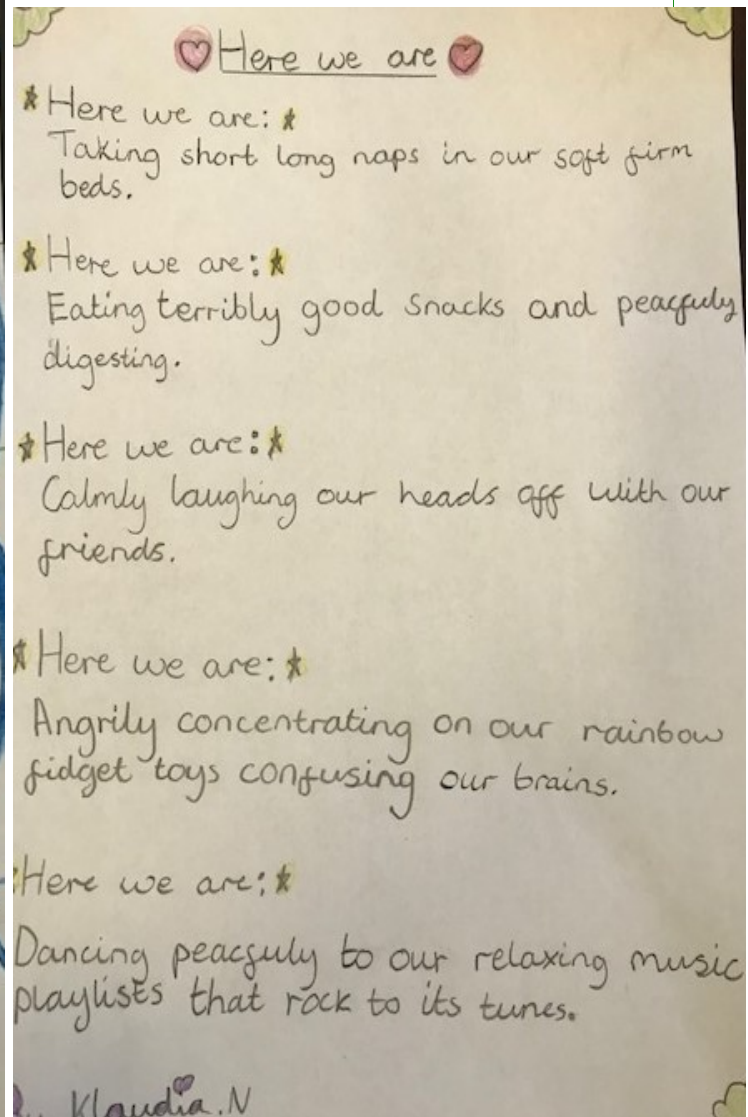 Here we are
Here we are:
Taking short long naps in our soft firm
beds.
Here we are:
Eating terribly good snacks and peacfuly
digesting.
Here we are:
Calmly laughing our heads off with our
friends.
Here we are:
Angrily concentrating on our rainbow
fidget toys confusing our brains.
Here we are:
Dancing peacfuly to our relaxing music
playlists that rock to its tunes.
Klaudia.N